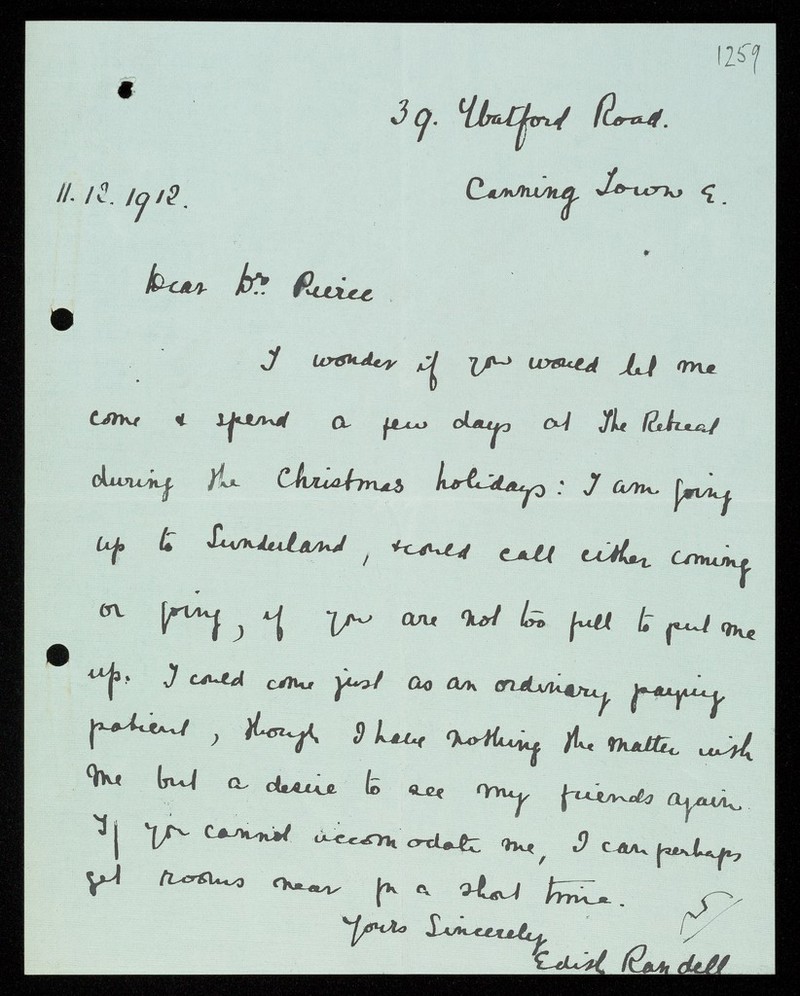 1259
39. Watford Road.
Canning Town E.
11.12.1912.
Dear Dr. Pierce
I wonder if you would let me
come & spend a few days at The Retreat
during the Christmas holidays: I am going
up to Sunderland, & could call either coming
or going, if you are not too full to put me
up. I could come just as an ordinary paying
patient, though I have nothing the matter with
me but a desire to see my friends again.
If you cannot accomodate me, I can perhaps
get rooms near for a short time.
Yours Sincerely
Edith Randell